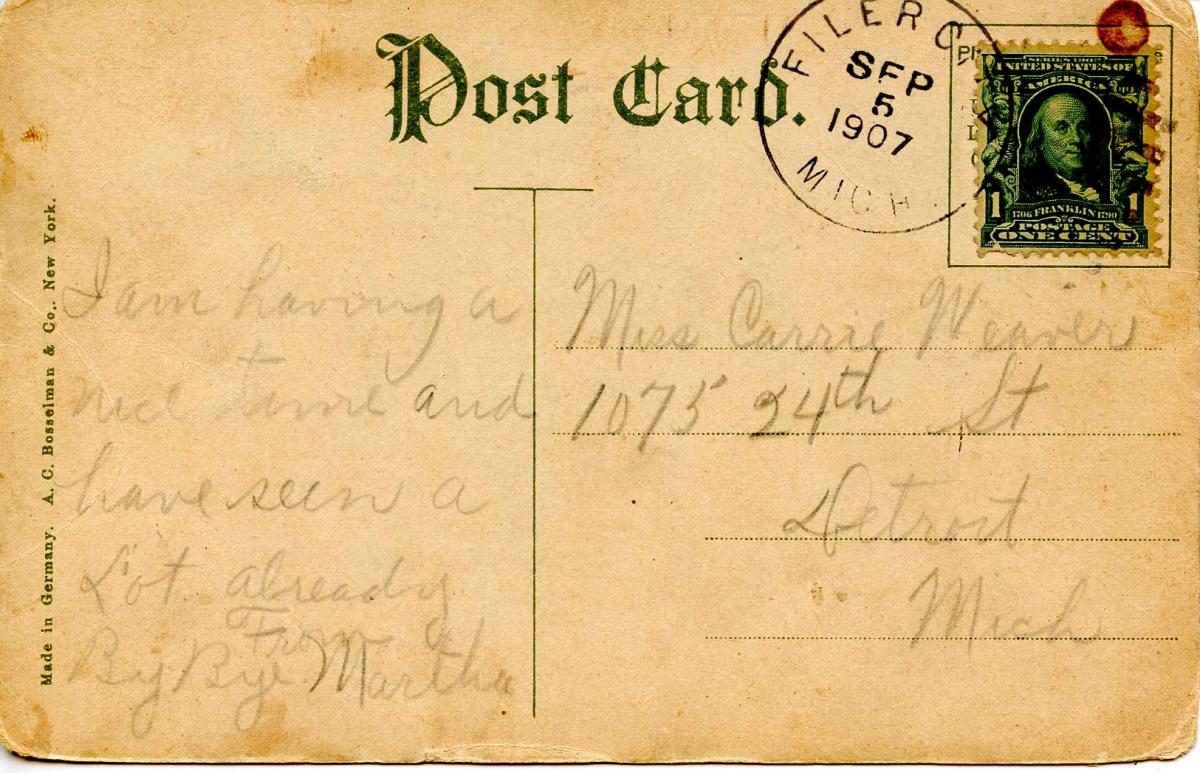 Post Card.
FILER C
SEP
5
1907
MICH.
SERIES 1902
UNITED STATES OF
AMERICA
1706 FRANKLIN 1790
POSTAGE
1 ONE CENT 1
Made in Germany. A. C. Bosselman & Co., New York.
I am having a
nice time and
have seen a
Lot already
From
By Bye Martha
Miss Carrie Weaver
1075 24th St
Detroit
Mich